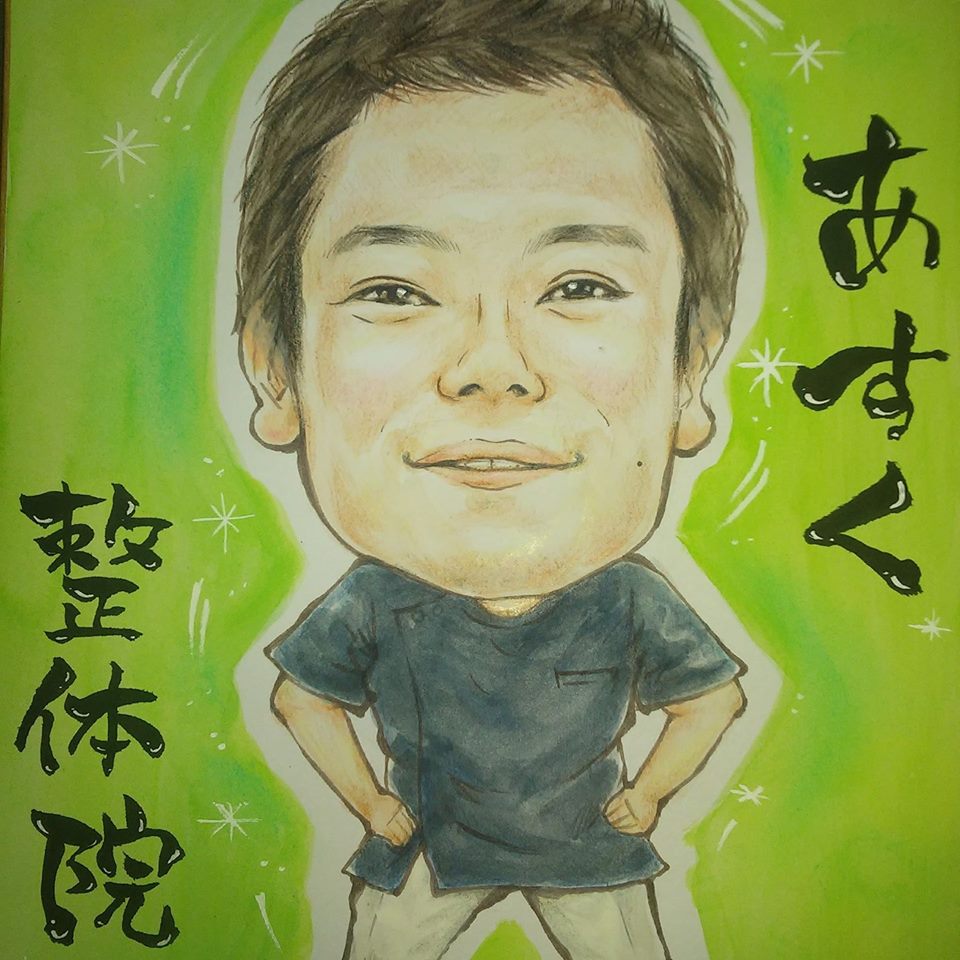 あすく
整体院